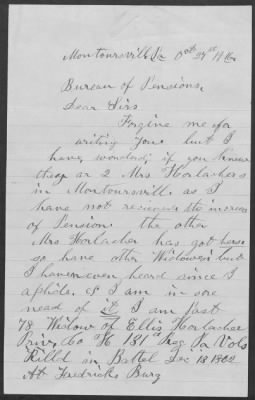 Montoursville Pa Oct 24st 1916
Bureau of Pensions,
Dear Sirs
Forgive me for
writing you but I
have wonderd, if you knew
their ar 2 Mrs Horlachers
in Montoursville as I
have not recieved the increas
of Pension. the other
Mrs Horlacher has got hers
so have other Widowes but
I haven even heard since I
aplide. & I am in sore
need of it I am past
78 Widow of Ellis Horlacher
Priv, Co H 131st Reg Pa Vols
Killd in Battel Dec 13 1862
At Fredricks Burg